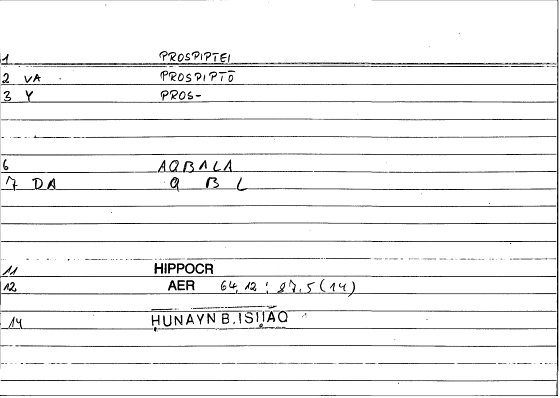 1 PROSPIPTEI
2 VA PROSPIPTŌ
3 Y PROS-
6 AQBALA
7 DA Q B L
11 HIPPOCR
12 AER 64,12 : 27.5 (14)
14 ḤUNAYN B. ISḤĀQ